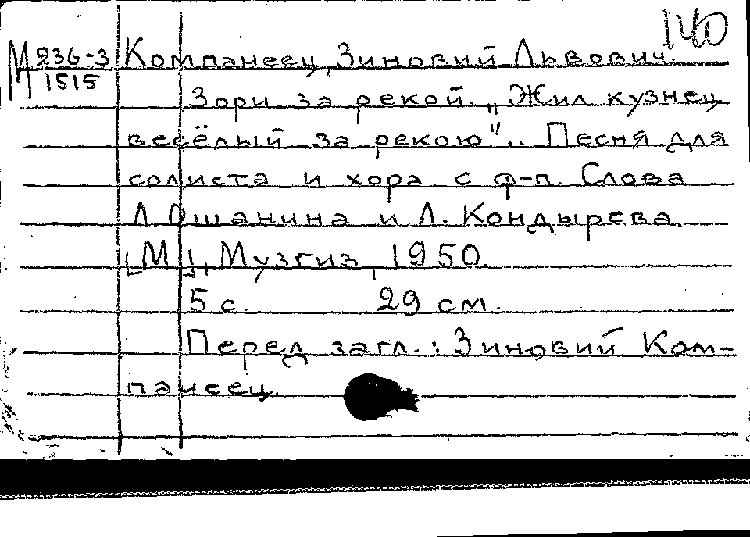 140
М 236-3 Компанеец, Зиновий Львович.
1515
Зори за рекой. „Жил кузнец
весёлый за рекою".. Песня для
солиста и хора с ф-п. Слова
Л. Ошанина и Л. Кондырева.
[М.], Музгиз, 1950.
5 с. 29 см.
Перед загл.: Зиновий Ком-
панеец.